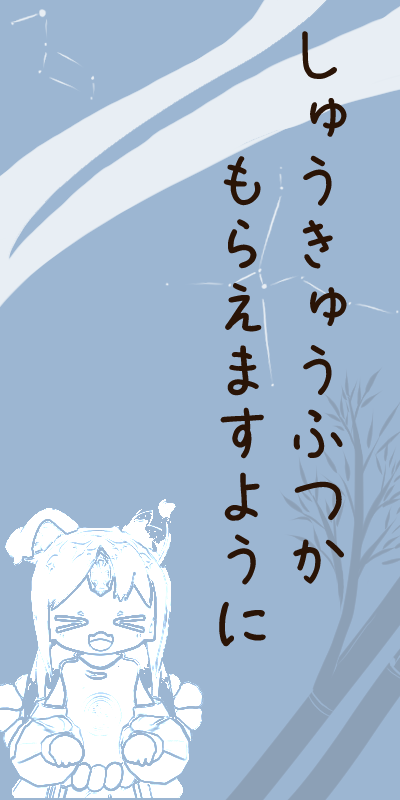 しゅうきゅうふつか
もらえますように